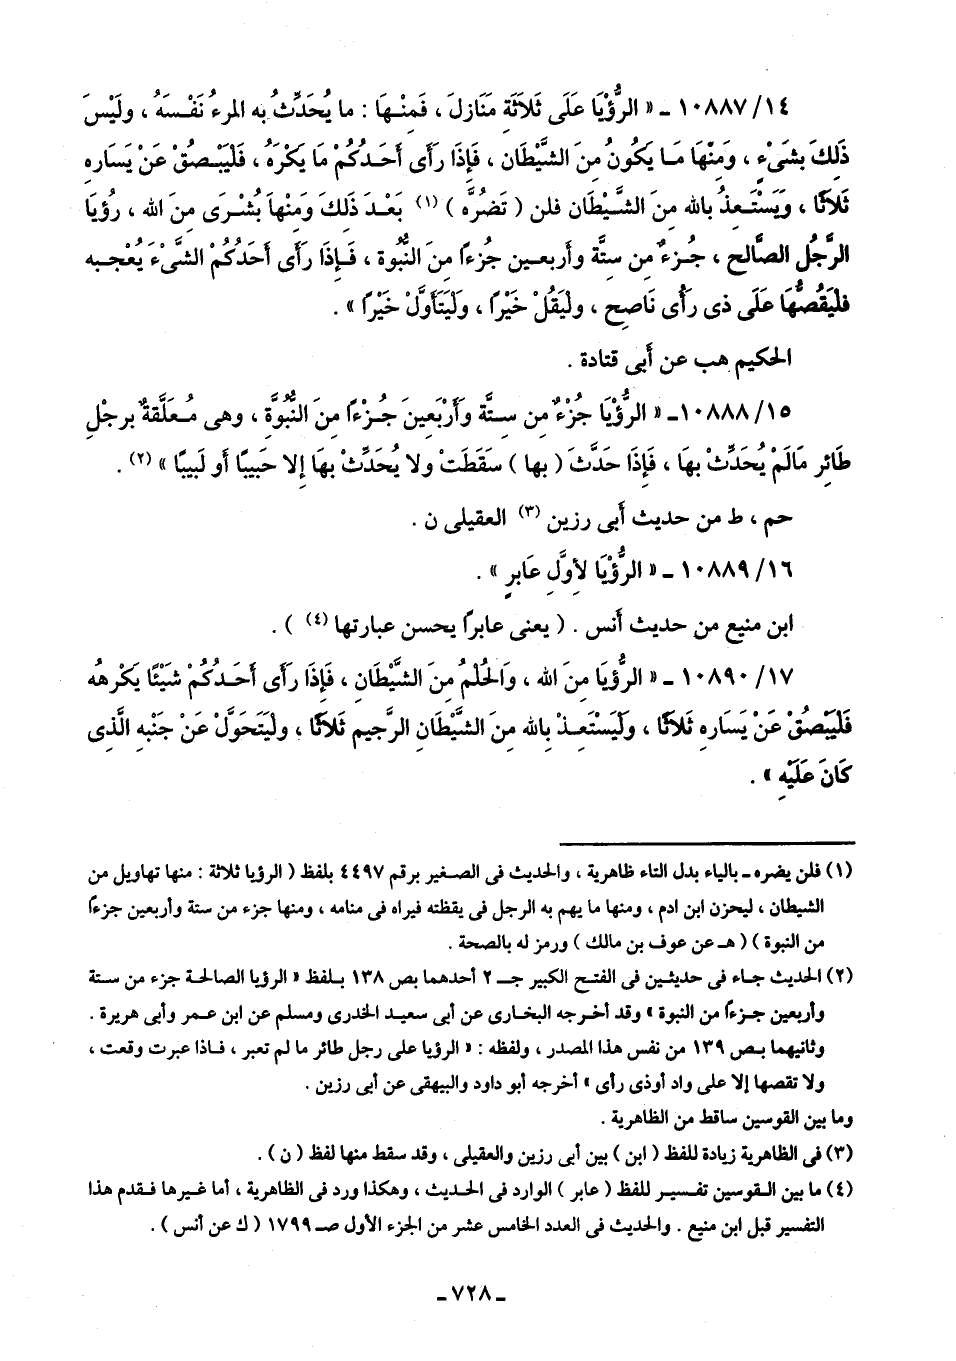 ١٤/ ١٠٨٨٧ ـ « الرُّؤْيَا عَلَى ثَلَاثَةِ مَنَازِلَ ، فَمِنْهَا : ما يُحَدِّثُ به المرءُ نَفْسَهُ ، ولَيْسَ
ذَلِكَ بشَىْءٍ ، وَمِنْهَا مَا يَكُونُ مِنَ الشَّيْطَانِ ، فَإِذَا رَأَى أَحَدُكُمْ مَا يَكْرَهُ ، فَلْيَبْصُقْ عَنْ يَسَارِهِ
ثَلَاثًا ، وَيَسْتَعِذُ بالله مِنَ الشَّيْطَانِ فلن ( تَضُرَّه ) (١) بَعْدَ ذَلِكَ وَمِنْهَا بُشْرَى مِنَ الله ، رُؤيَا
الرَّجُلِ الصَّالِحِ ، جُزءٌ مِن ستَّةٍ وأَربعينَ جُزءًا مِنَ النُّبُوة ، فَإِذَا رَأَى أَحَدُكُمْ الشَّىْءَ يُعْجِبه
فَلْيَقُصُّهَا عَلَى ذى رَأْى نَاصِحٍ ، وليَقُلْ خَيْرًا ، وَلْيَتَأَوَّلْ خَيْرًا » .
الحكيم هب عن أَبى قتادة .
١٥/ ١٠٨٨٨ـ « الرُّؤْيَا جُزْءٌ مِن سِتَّةٍ وَأَرْبَعِينَ جُزْءًا مِنَ النُّبُوَّةِ ، وهى مُعَلَّقةٌ برِجْلِ
طَائِرٍ مَالَمْ يُحَدِّثْ بهَا ، فَإِذَا حَدَّثَ ( بها ) سَقَطَتْ ولا يُحَدِّثْ بهَا إلا حَبيبًا أَو لَبيبًا » (٢) .
حم ، ط من حديث أَبى رزين (٣) العقيلى ن .
١٦/ ١٠٨٨٩ ـ « الرُّؤْيَا لأوَّلِ عَابِرٍ » .
ابن منيع من حديث أَنس . ( يعنى عابرًا يحسن عبارتها (٤) ) .
١٧/ ١٠٨٩٠ ـ « الرُّؤيَا مِنَ الله ، وَالحُلْمُ مِنَ الشَّيْطَانِ ، فَإِذَا رَأَى أَحَدُكُمْ شَيْئًا يَكْرهُه
فَلْيَبْصُقْ عَنْ يَسَارِهِ ثَلَاثًا ، وَلْيَسْتَعِذْ بالله مِنَ الشَّيْطَانِ الرَّجِيمِ ثَلَاثًا ، وليَتَحَوَّلْ عَنْ جَنْبِهِ الَّذِى
كَانَ عَلَيْهِ » .
(١) فلن يضره ـ بالياء بدل التاء ظاهرية ، والحديث فى الصغير برقم ٤٤٩٧ بلفظ ( الرؤيا ثلاثة : منها تهاويل من
الشيطان ، ليحزن ابن ادم ، ومنها ما يهم به الرجل فى يقظته فيراه فى منامه ، ومنها جزء من ستة وأربعين جزءًا
من النبوة ) ( هـ عن عوف بن مالك ) ورمز له بالصحة .
(٢) الحديث جاء فى حديثين فى الفتح الكبير جـ ٢ أحدهما بص ١٣٨ بلفظ « الرؤيا الصالحة جزء من ستة
وأربعين جزءًا من النبوة » وقد أخرجه البخارى عن أبى سعيد الخدرى ومسلم عن ابن عمر وأبى هريرة .
وثانيهما بص ١٣٩ من نفس هذا المصدر ، ولفظه : « الرؤيا على رجل طائر ما لم تعبر ، فاذا عبرت وقعت ،
ولا تقصها إلا على واد أوذى رأى » أخرجه أبو داود والبيهقى عن أبى رزين .
وما بين القوسين ساقط من الظاهرية .
(٣) فى الظاهرية زيادة للفظ ( ابن ) بين أبى رزين والعقيلى ، وقد سقط منها لفظ ( ن ) .
(٤) ما بين القوسين تفسير للفظ ( عابر ) الوارد فى الحديث ، وهكذا ورد فى الظاهرية ، أما غيرها فقدم هذا
التفسير قبل ابن منيع . والحديث فى العدد الخامس عشر من الجزء الأول صـ ١٧٩٩ ( ك عن أنس ) .
ـ ٧٢٨ ـ